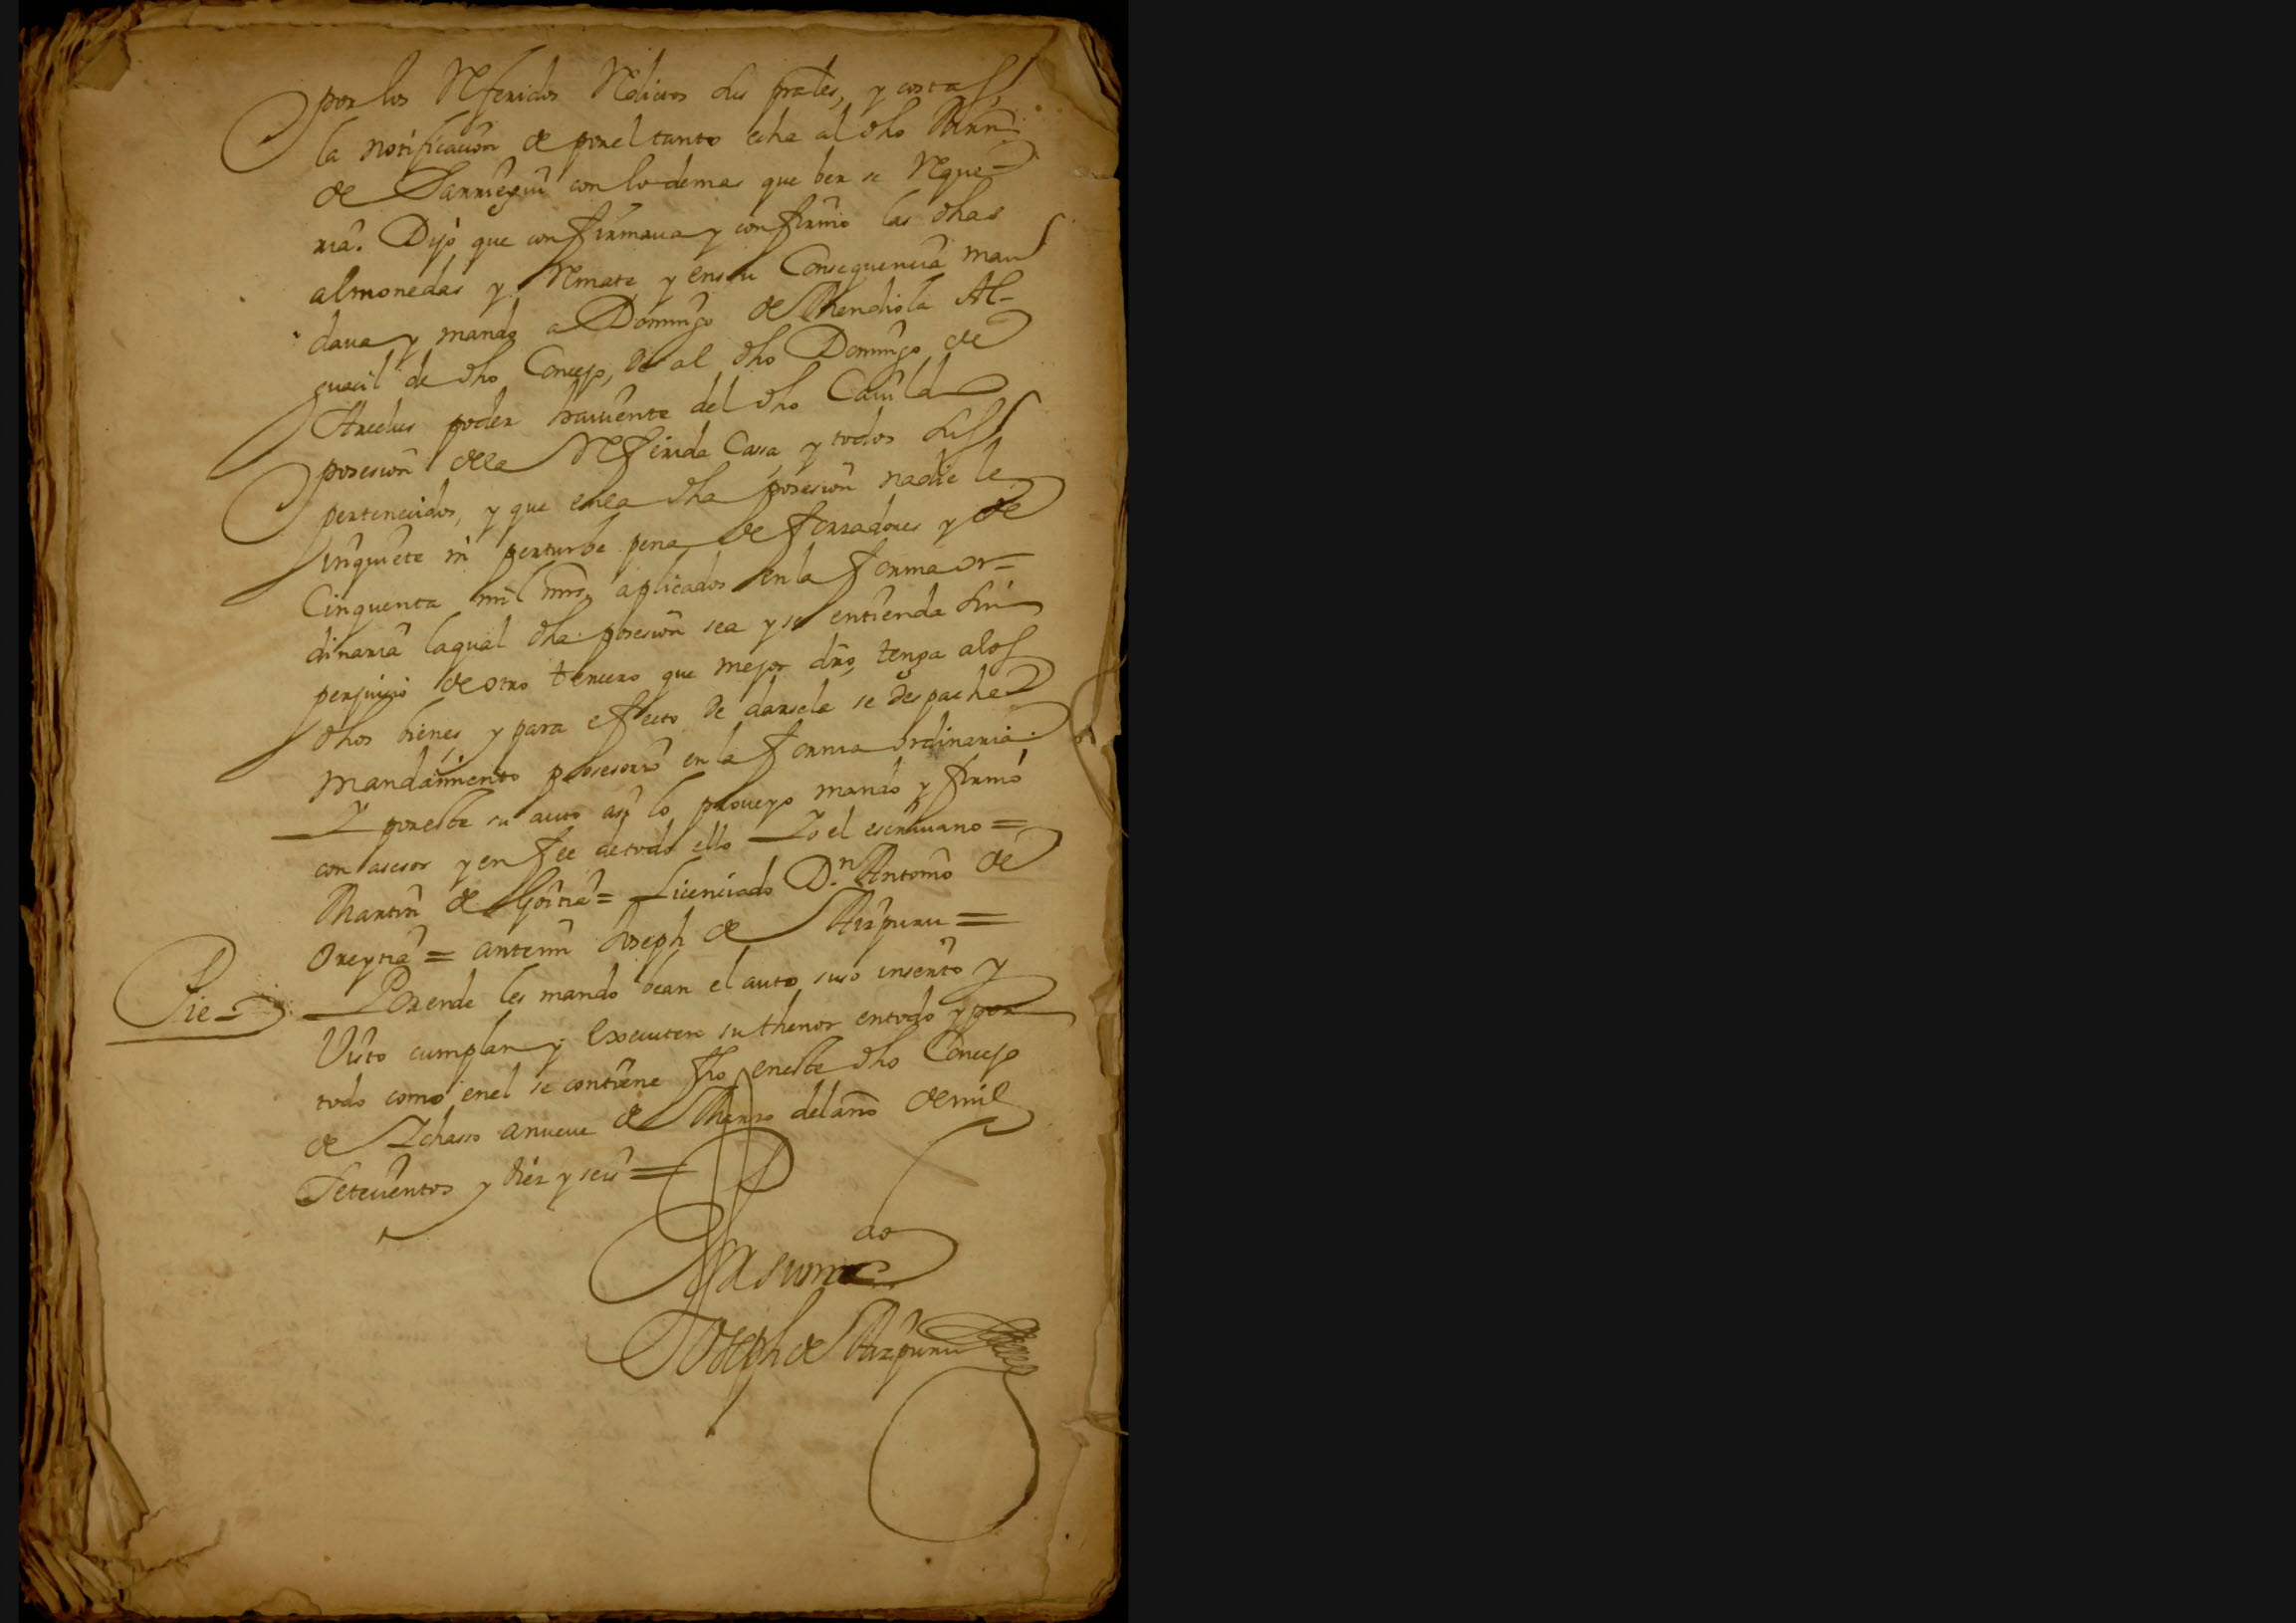 por los Referidos Reditos sus prâles, y costas,
la notificaçion de por el tanto echa al dho Mrñ
de Barrueguî con lo demas que ber se Reque=
ria. Dijo que confirmaua y confirmo las dhas
almonedas y Remate y en su Consequencia man
daua y mando a Domingo de Mendiola Al-
guacil de dho Concejo, de al dho Domingo de
Areches poder hauiente del dho Cauildo
posesion de la Referida Cassa, y todos sus
pertenecidos, y que en ea dha posesion nadie le
ynquiete ni perturbe pena de forzadores y de
Cinquenta mil mrs, aplicados en la forma or=
dinaria la qual dha posesion sea y se entienda sin
perjuiçio de otro tercero que mejor dro, tenga alos
dhos bienes y para efecto de darsela se despache
mandamiento posesorio en la forma ordinaria.
Y por este su auto asi lo proueyo mando y firmó
con asesor y en fee de todo ello Yo el escriuano =
Martin de Goitia = Licenciado D.n Antonio de
Oreytia = antemi Joseph de Aizpuru =
Pie= Porende les mando bean el auto suso inserto y
Visto cumplan y executen su thenor en todo y por
todo como en el se contiene fho en este dho Concejo
de Ychasso a nueue de Marzo del año de mil
Setecientos y diez y seis =
Joseph de Aizpuru